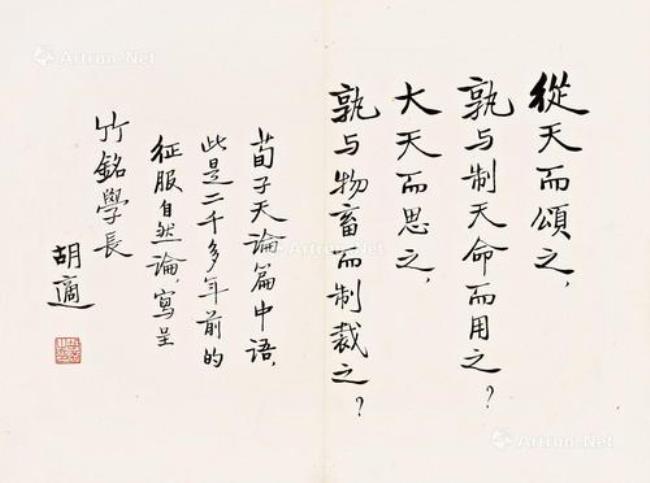 從天而頌之，
孰与制天命而用之？
大天而思之，
孰与物畜而制裁之？
荀子天論篇中语，
此是二千多年前的
征服自然論，寫呈
竹銘學長
胡適
Artron.Net
Artron.Net
Artron.Net